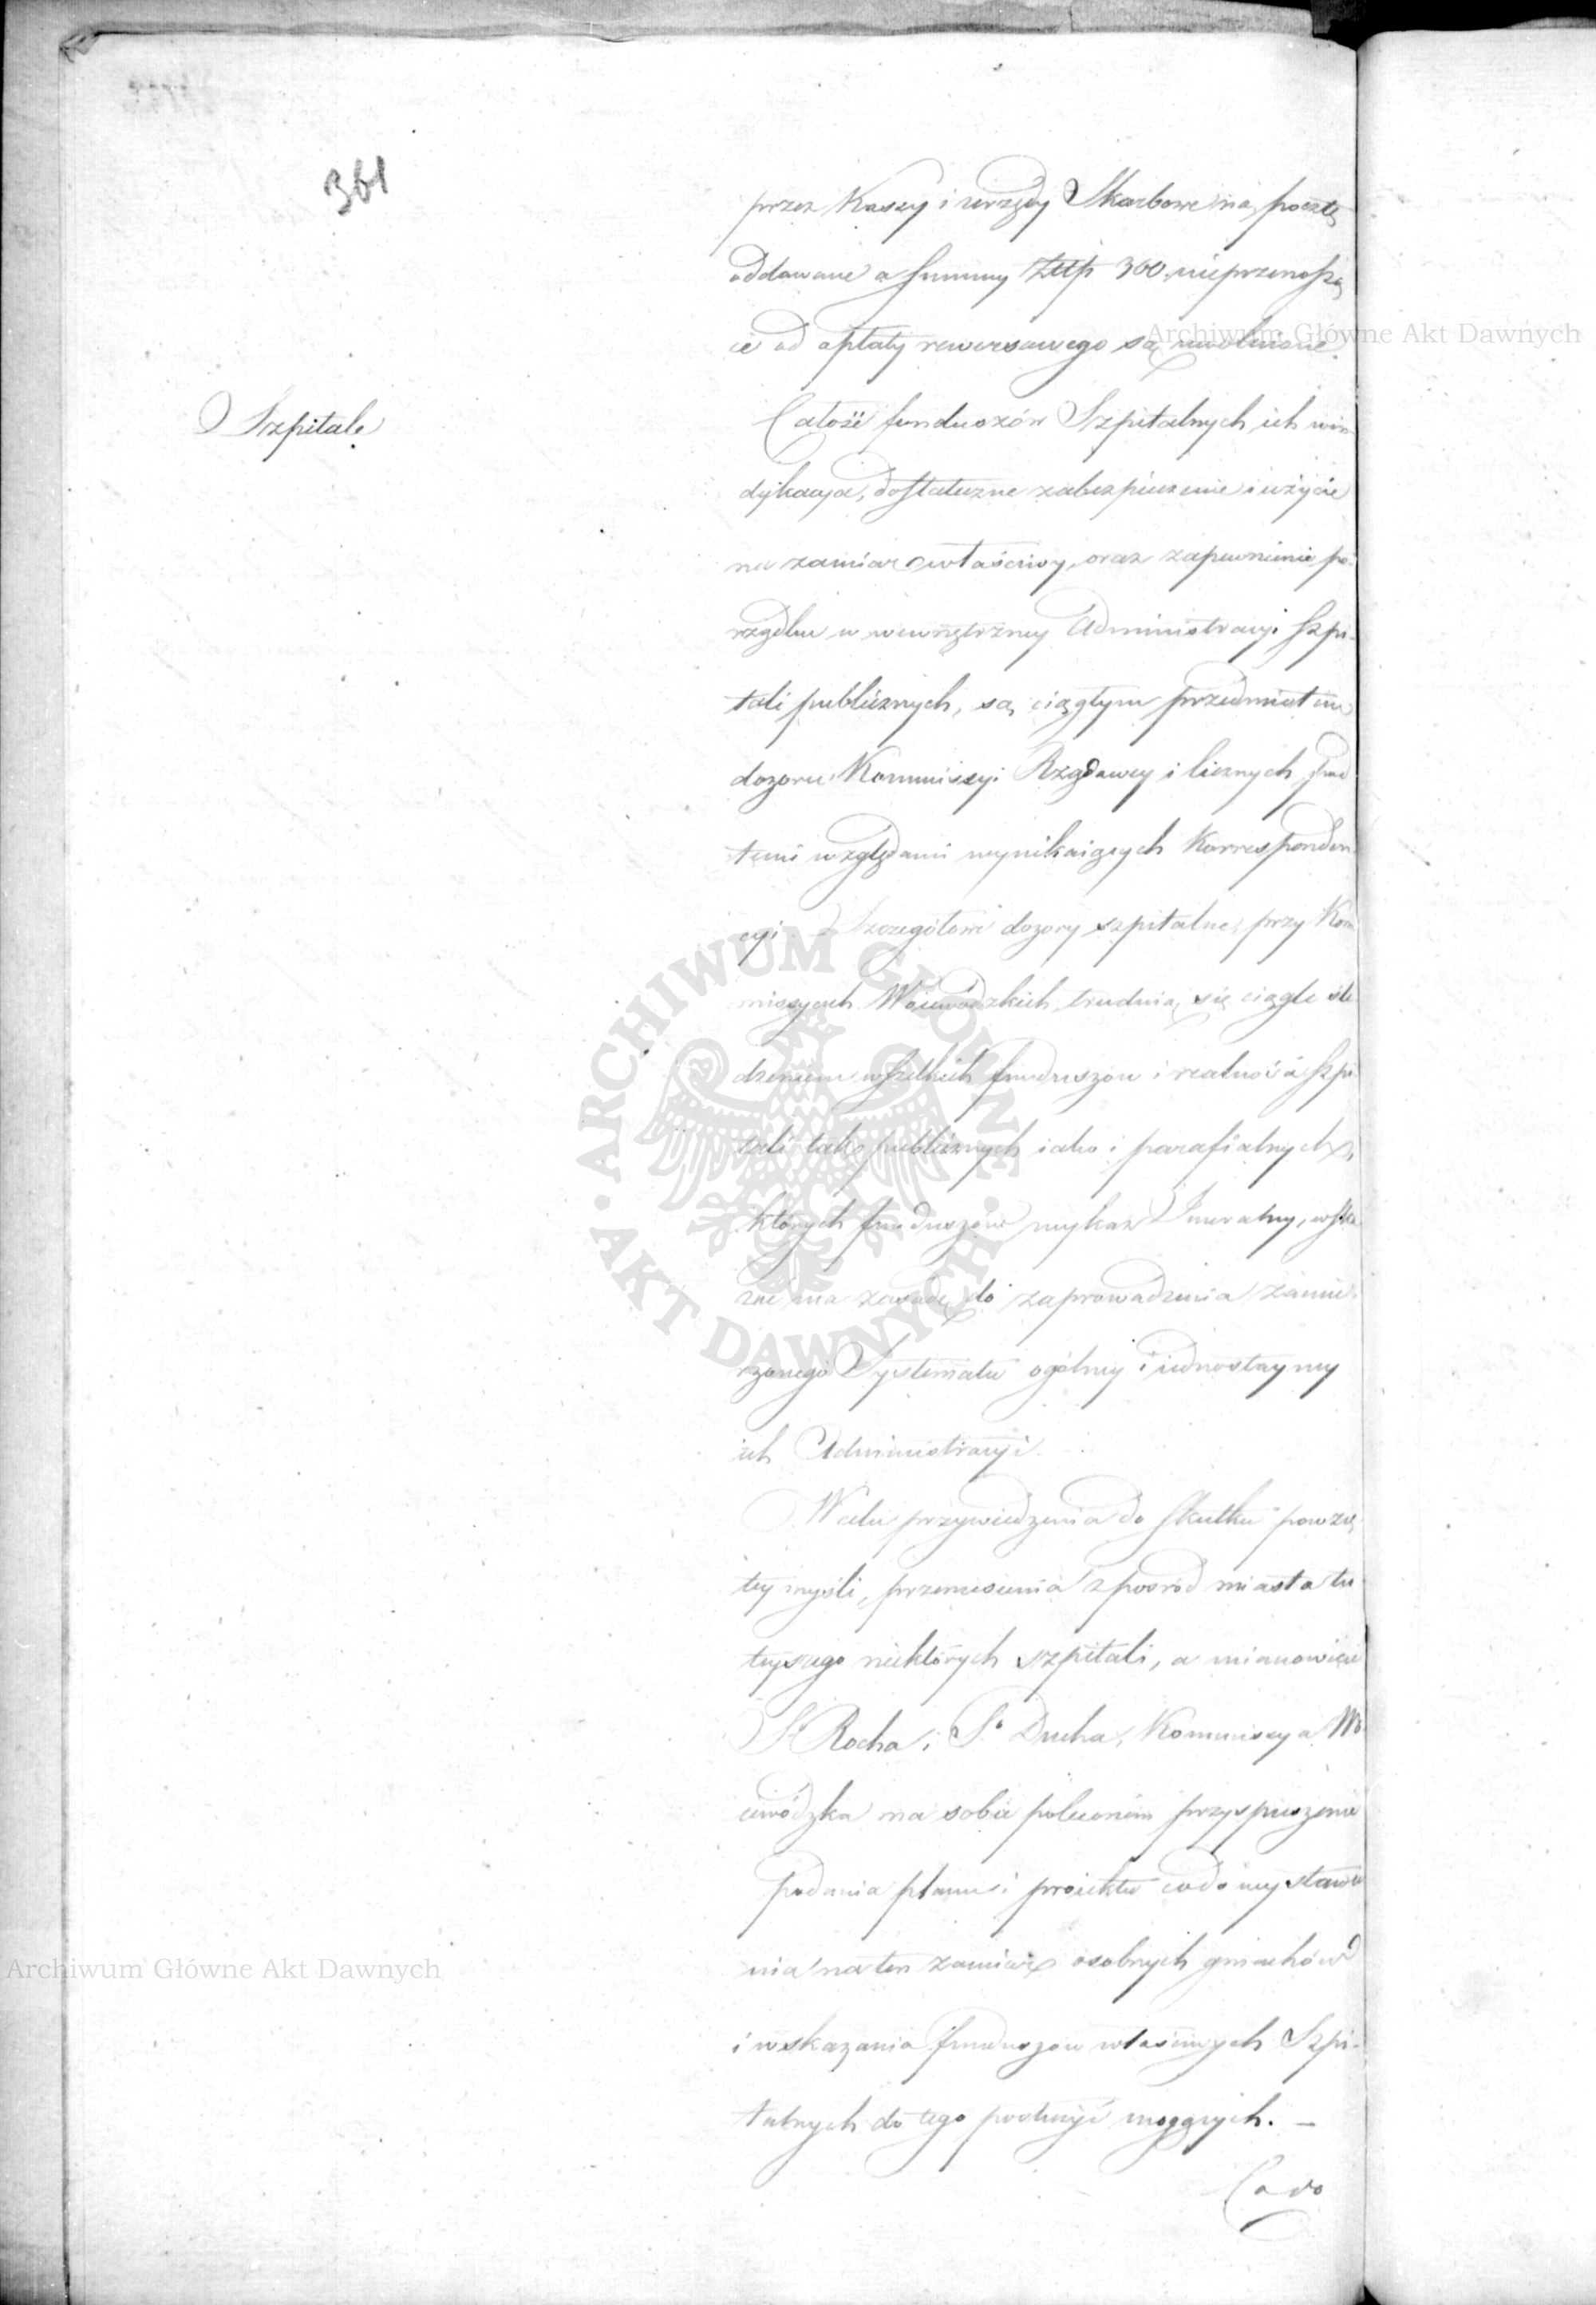 361
przez Kassy i urzędy Skarbowe na pocztę
oddawane a summy Złtp 300 nieprzenoszą
ce od opłaty rewersowego są uwolnione.
Szpitale
Całość funduszów Szpitalnych, ich win
dykacya, dostateczne zabezpieczenie i użycie
na zamiar właściwy, oraz zapewnienie po
rządku w wewnętrzney Administracyi Szpi-
tali publicznych, są ciągłym przedmiotem
dozoru Kommissyi Rządowey i licznych pod
temi względami wynikaiących Korresponden
cyi. — Szczegółowe dozory szpitalne, przy Kom
missyach Woiewódzkich, trudnią się ciągle śle
dzeniem wszelkich funduszów i realności Szpi
tali tak publicznych iako i parafialnych,
których funduszów wykaz Jeneralny, wska
że na zasadę do zaprowadzenia zamie
rzonego Systematu ogólney i iednostayney
ich Administracyi.
W celu przywiedzenia do skutku powzię
tey myśli, przeniesienia z pośród miasta tu
teyszego niektórych szpitali, a mianowicie
St Rocha i So Ducha, Kommissya Wo
iewódzka ma sobie poleconem przyspieszenie
podania planu i proiektu co do wystawie
nia na ten zamiar osobnych gmachów
i wskazania funduszów właściwych Szpi-
talnych do tego posłużyć mogących. —
Co do
Archiwum Główne Akt Dawnych
Archiwum Główne Akt Dawnych
ARCHIWUM GŁÓWNE • AKT DAWNYCH •